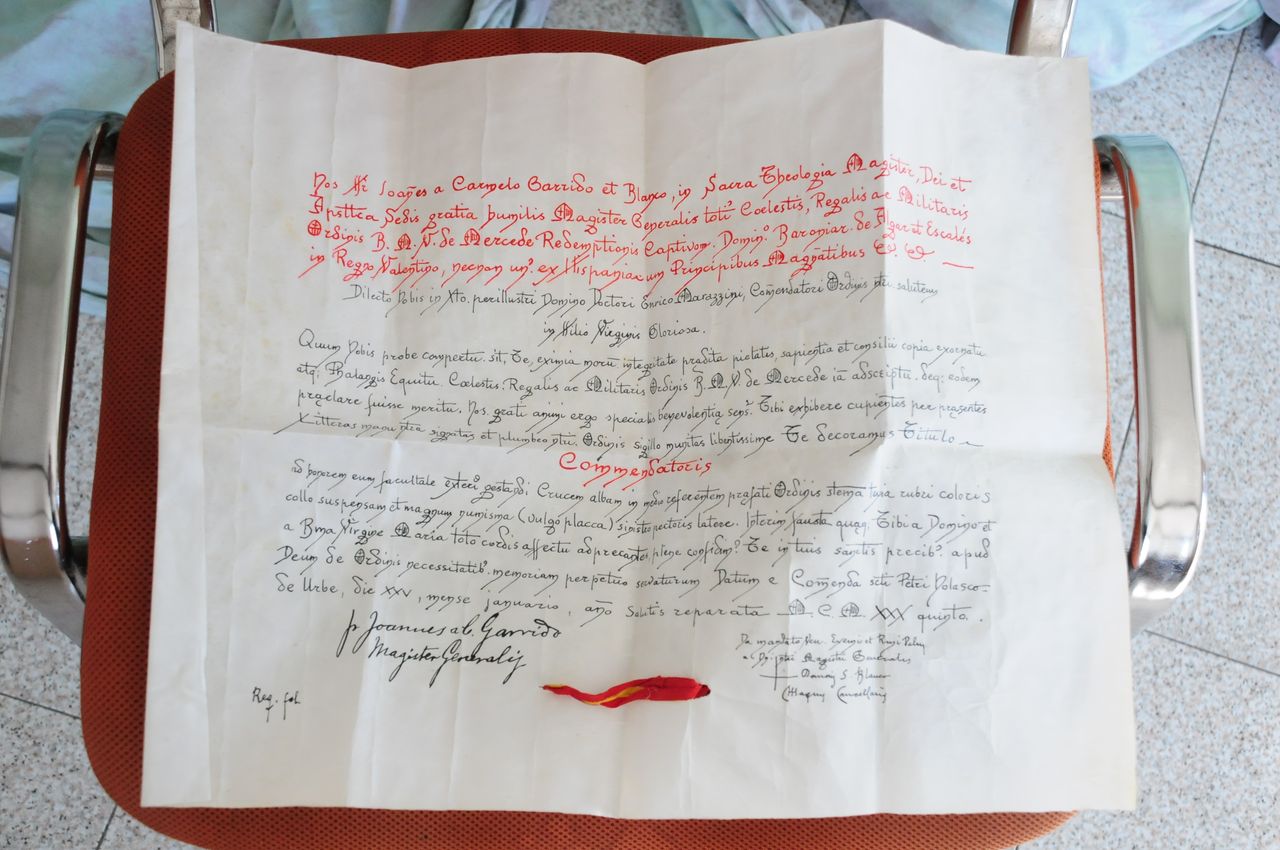 Nos Fr. Joañes a Carmelo Garrido et Blanco, in Sacra Theologia Magister, Dei et
Apsttca Sedis gratia humilis Magister Generalis totiº Coelestis, Regalis ac Militaris
Ordinis B. M. V. de Mercede Redemptionis Captivom. Dominº. Baroniar. de Algar et Escalés
in Regno Valentino, necnon unº. ex Hispaniarum Principibus Magnatibus &. &. —
Dilecto Nobis in Xto. perillustri Domino Doctori Enrico Marazzini, Com̃endatori Ordinis ntri salutem
in Filio Virginis Gloriosa.
Quum Nobis probe compectu. sit, Te, eximia morū integritate prædita pietatis, sapientia et consilii copia exornatu
atq; Phalangis Equitu. Cœlestis. Regalis ac Militaris Ordinis B. M. V. de Mercede iā adscriptū. deq; eodem
præclare fuisse meritu. Nos. grati animi ergo specialis benevolentiæ sensº. Tibi exhibere cupientes per præsentes
Litteras manu ntra signatas et plumbeo ntri. Ordinis sigillo munitas libentissime Te decoramus Titulo
Commendatoris
ad honorem cum facultate exteriº gestandi Crucem albam in medio referentem præfati Ordinis stema tenia rubri coloris
collo suspensam et magnum numisma (vulgo placca) sinistro pectoris latere. Interim fausta quæq; Tibi a Domino et
a Bma Virgine Maria toto cordis affectu adprecantes, plene confidimº. Te in tuis sanctis precibº. apud
Deum de Ordinis necessitatibº. memoriam perpetuo servaturum Datum e Com̃enda sti Petri Nolasco-
de Urbe, die XXV, mense januario, año Salutis reparata M. C. M. XXX quinto..
fr Joannes a C. Garrido
Magister Generalis
De mandato Rev. Exemi et Rmi Patris
ac Dn. ntri Magistri Generalis
S. Blanco
Cancellarius
Reg. fol.